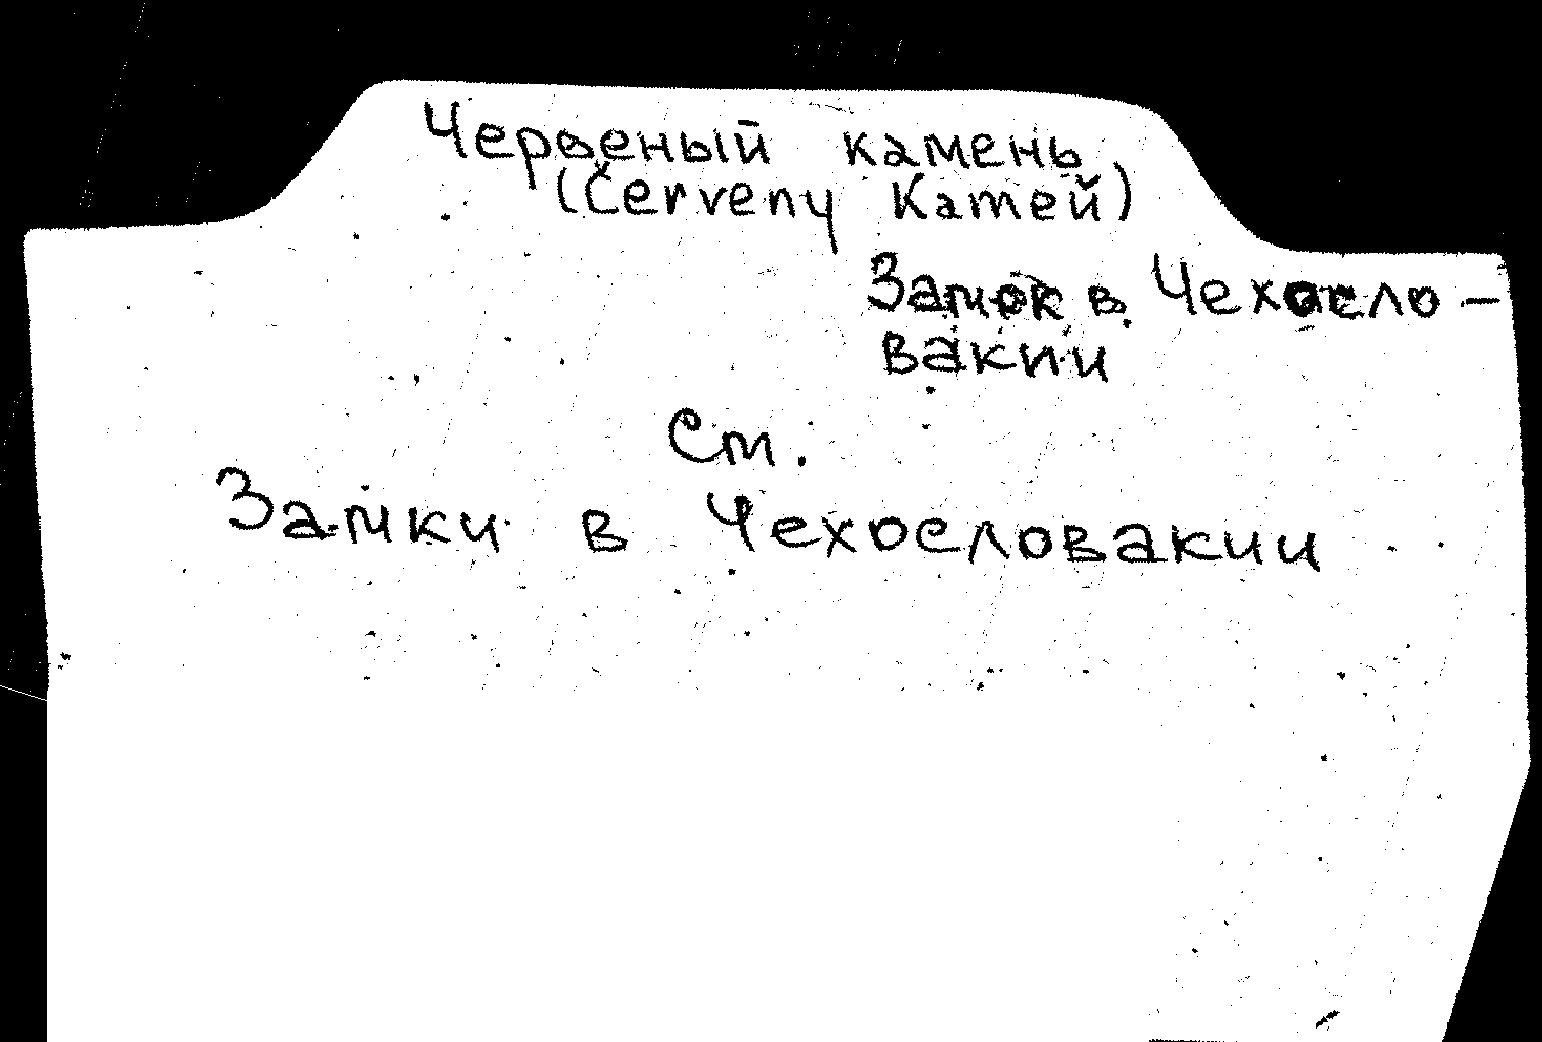 Червеный камень
(Červeny Kameň)
Замок в Чехосло-
вакии
См.
Замки в Чехословакии